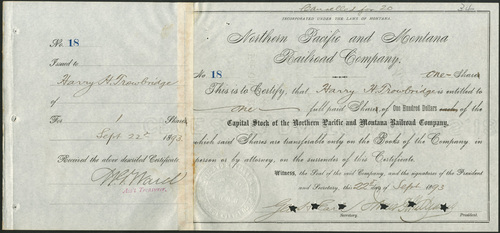 Cancelled for 20
INCORPORATED UNDER THE LAWS OF MONTANA.
No. 18
Issued to
Harry H. Trowbridge
of
For 1 Shares
Sept. 22d 1893
Received the above described Certificate
Ass't Treasurer
Northern Pacific and Montana
Railroad Company,
No. 18
One Share
This is to Certify, that Harry H. Trowbridge is entitled to
one full paid Share of One Hundred Dollars each of the
Capital Stock of the Northern Pacific and Montana Railroad Company,
which said Shares are transferable only on the Books of the Company in
person or by attorney, on the surrender of this Certificate.
Witness, the Seal of the said Company, and the signatures of the President
and Secretary, this 22d day of Sept. 1893
Secretary. President